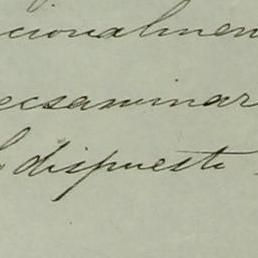 cionalmen
ecsaminar
lo dispuesto